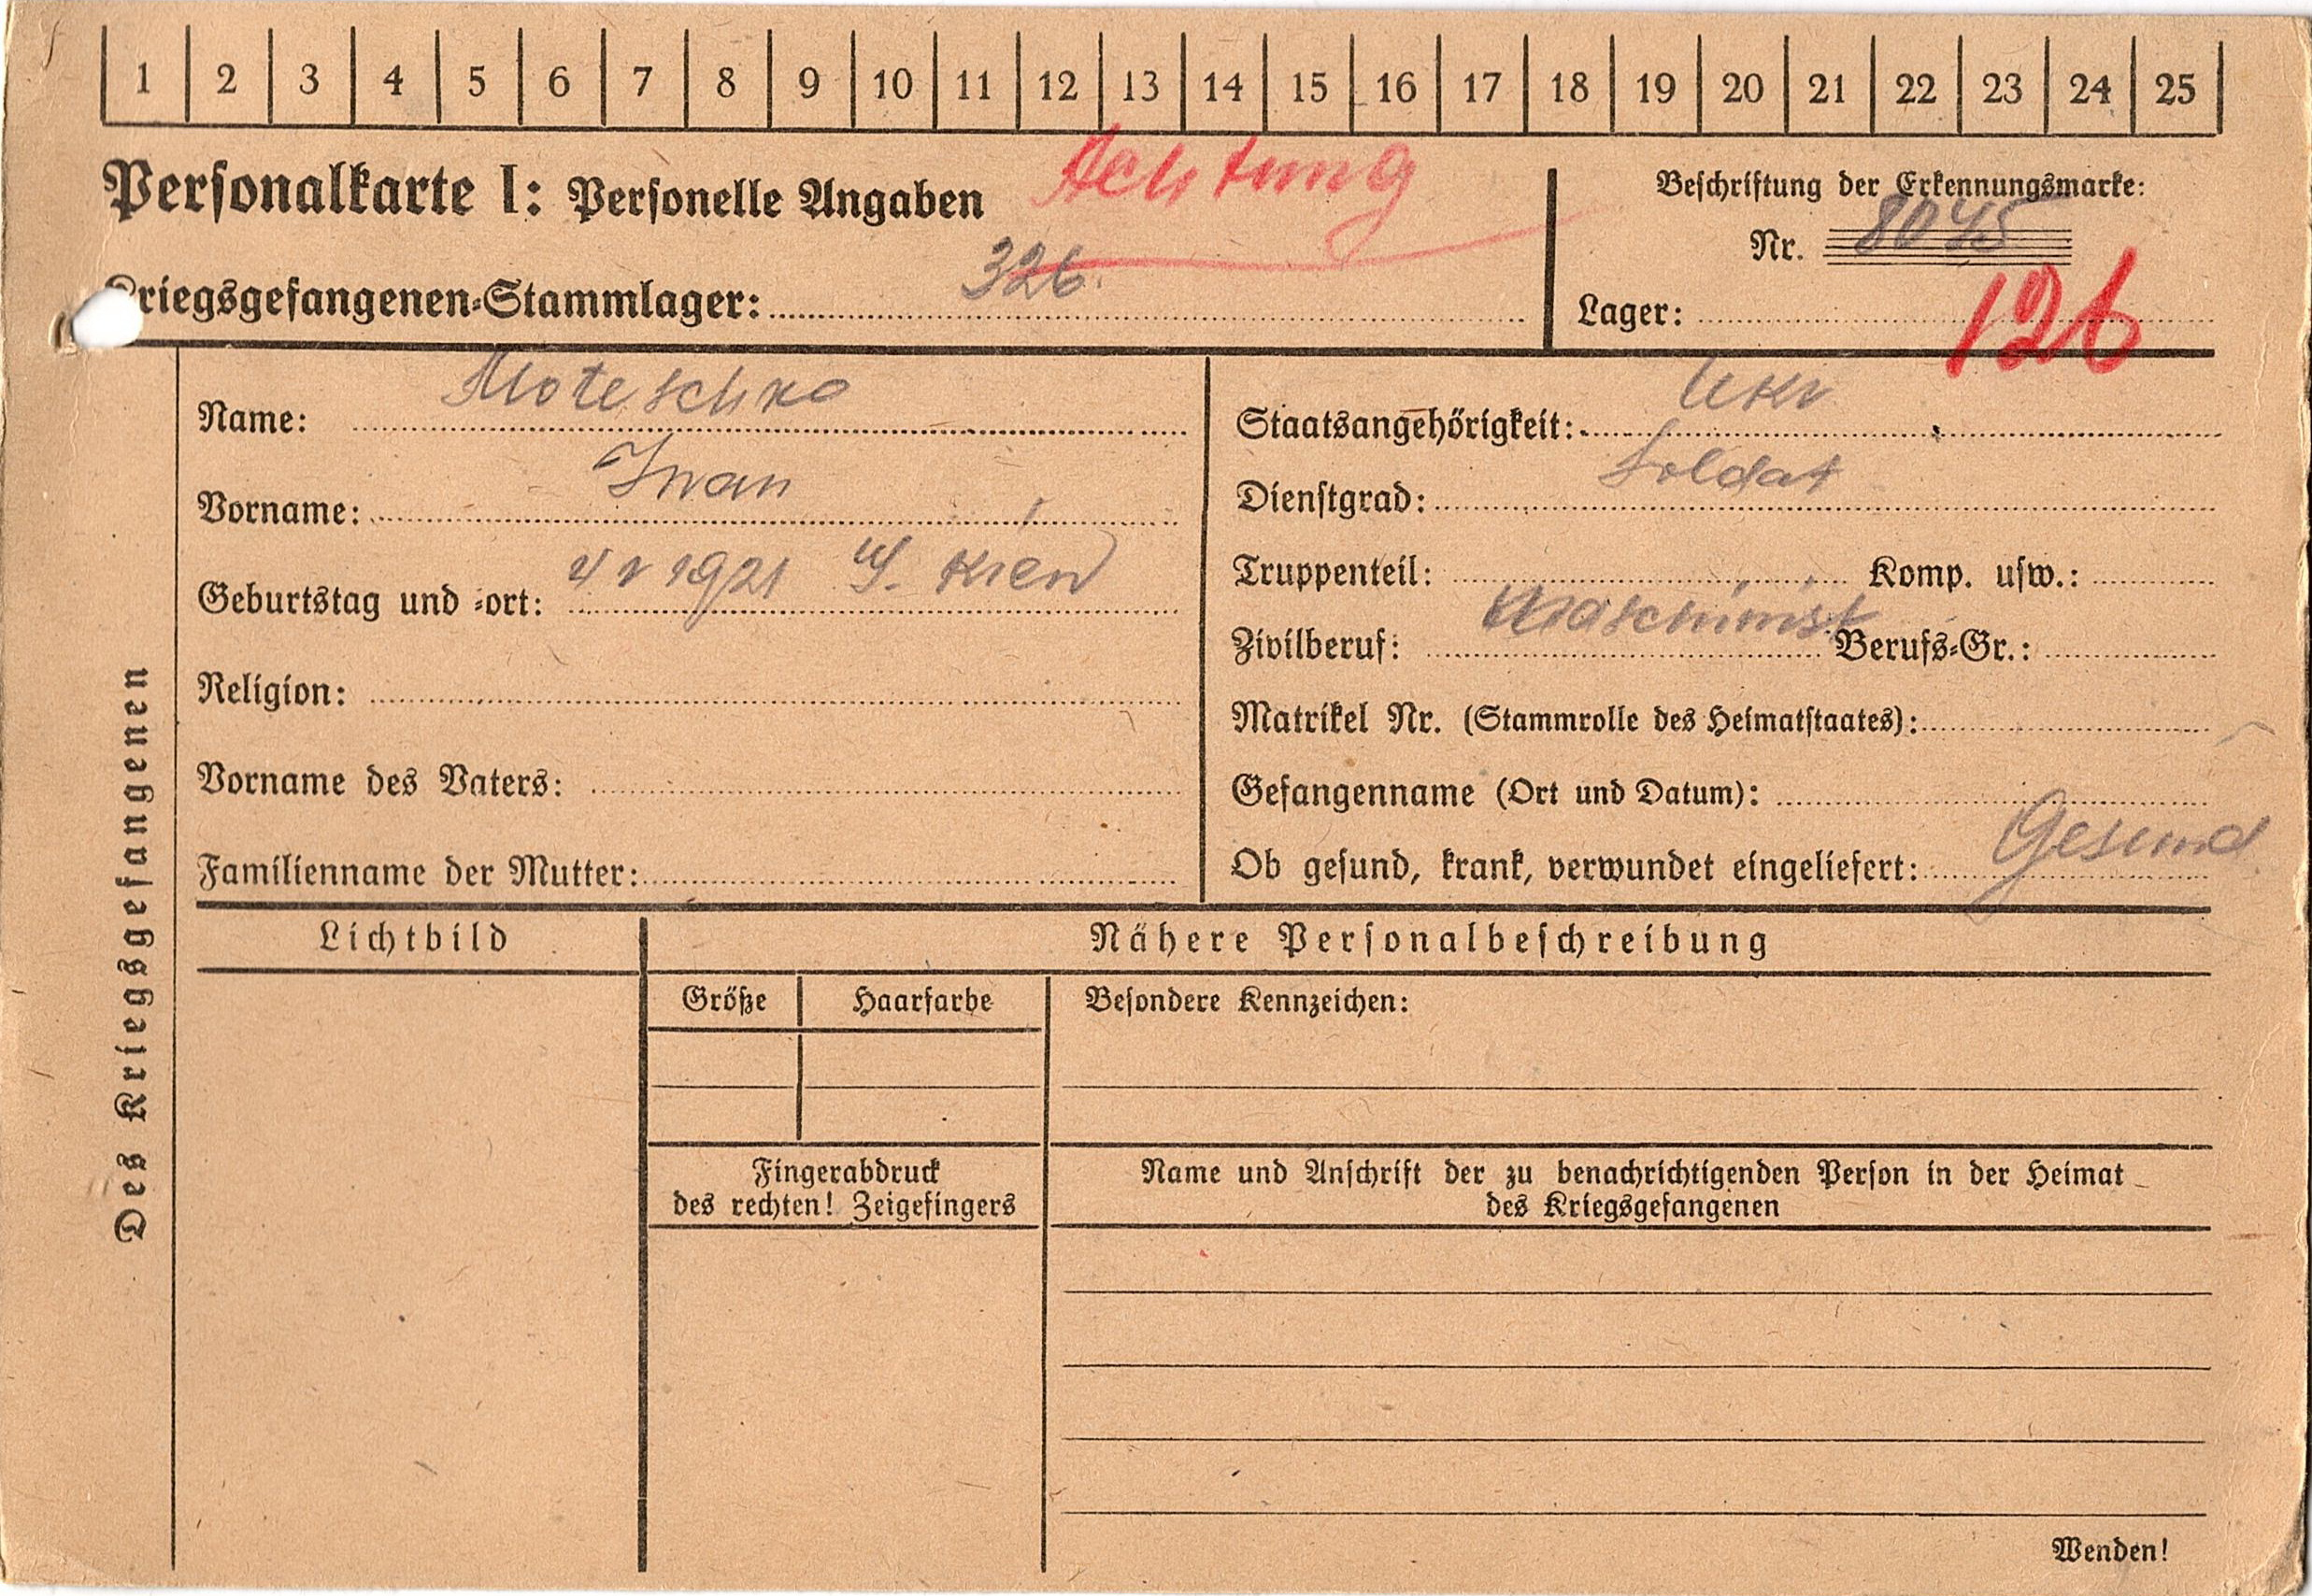 1 2 3 4 5 6 7 8 9 10 11 12 13 14 15 16 17 18 19 20 21 22 23 24 25
Personalkarte I: Personelle Angaben
Achtung
Beschriftung der Erkennungsmarke:
Nr. 8045
Kriegsgefangenen-Stammlager: 326.
Lager: 126
Des Kriegsgefangenen
Name: Moteschko
Vorname: Iwan
Geburtstag und -ort: 1921 Kiew
Religion:
Vorname des Vaters:
Familienname der Mutter:
Staatsangehörigkeit: Ukr
Dienstgrad: Soldat
Truppenteil: Komp. usw.:
Zivilberuf: Maschinist Berufs-Gr.:
Matrikel Nr. (Stammrolle des Heimatstaates):
Gefangenname (Ort und Datum):
Ob gesund, krank, verwundet eingeliefert: Gesund
Lichtbild
Nähere Personalbeschreibung
Größe Haarfarbe Besondere Kennzeichen:
Fingerabdruck
des rechten! Zeigefingers
Name und Anschrift der zu benachrichtigenden Person in der Heimat
des Kriegsgefangenen
Wenden!